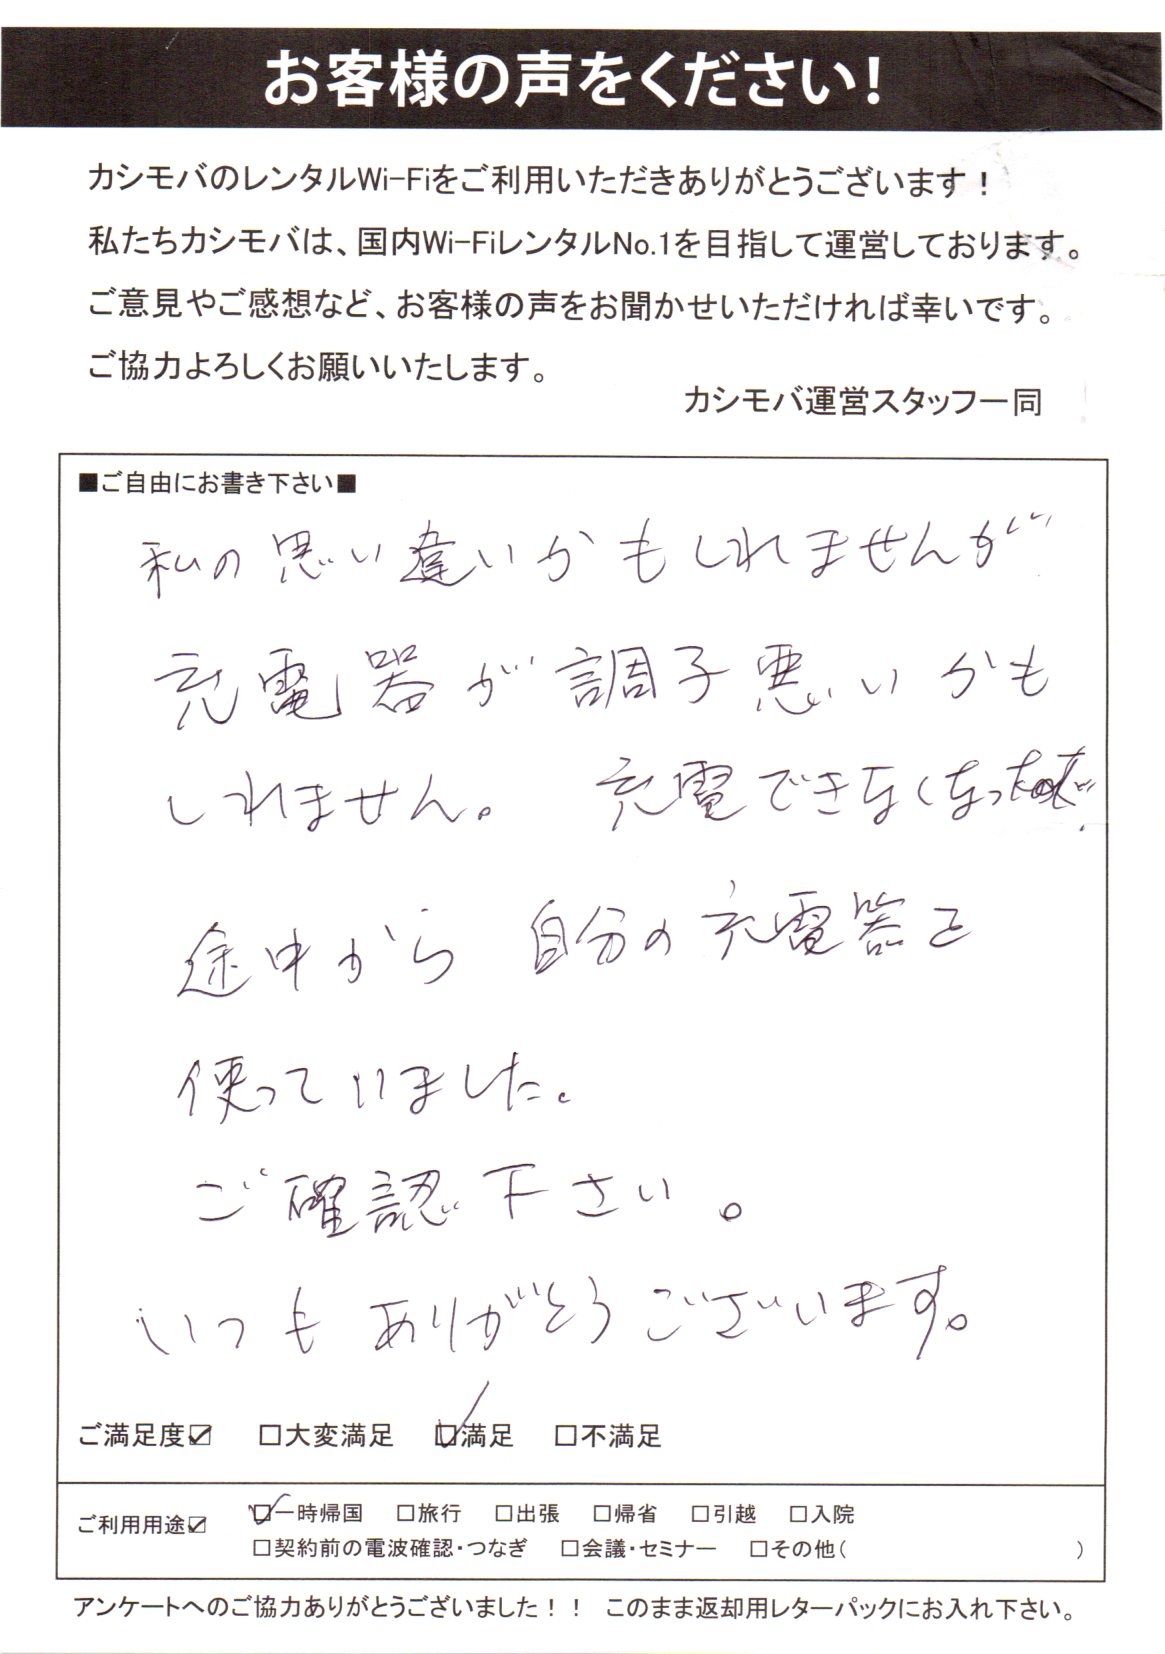 お客様の声をください！
カシモバのレンタルWi-Fiをご利用いただきありがとうございます！
私たちカシモバは、国内Wi-FiレンタルNo.1を目指して運営しております。
ご意見やご感想など、お客様の声をお聞かせいただければ幸いです。
ご協力よろしくお願いいたします。
カシモバ運営スタッフ一同
■ご自由にお書き下さい■
私の思い違いかもしれませんが
充電器が調子悪いかも
しれません。 充電できなくなった
途中から 自分の充電器を
使っていました。
ご確認下さい。
いつもありがとうございます。
ご満足度☑ □大変満足 ☑満足 □不満足
ご利用用途☑ ☑一時帰国 □旅行 □出張 □帰省 □引越 □入院
□契約前の電波確認・つなぎ □会議・セミナー □その他( )
アンケートへのご協力ありがとうございました！！ このまま返却用レターパックにお入れ下さい。